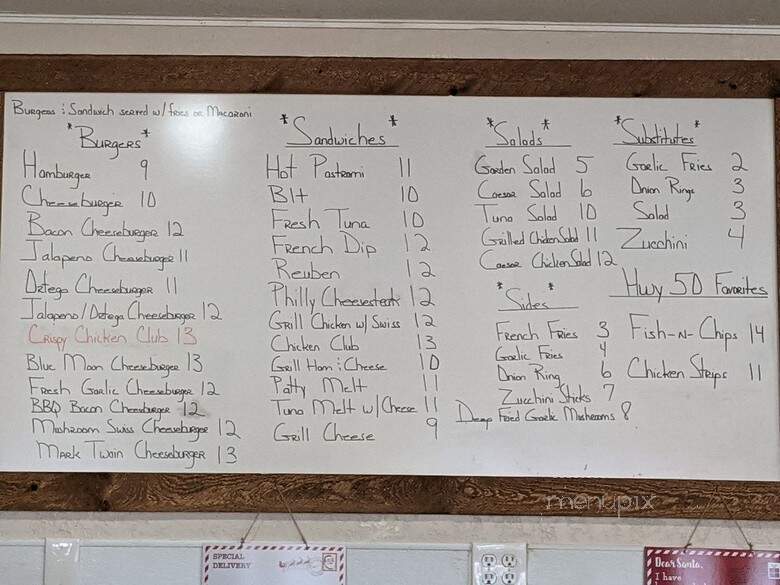 Burgers & Sandwich served w/ fries or Macaroni
*Burgers*
Hamburger 9
Cheeseburger 10
Bacon Cheeseburger 12
Jalapeno Cheeseburger 11
Ortega Cheeseburger 11
Jalapeno/Ortega Cheeseburger 12
Crispy Chicken Club 13
Blue Moon Cheeseburger 13
Fresh Garlic Cheeseburger 12
BBQ Bacon Cheeseburger 12
Mushroom Swiss Cheeseburger 12
Mark Twain Cheeseburger 13
*Sandwiches*
Hot Pastrami 11
Blt 10
Fresh Tuna 10
French Dip 12
Reuben 12
Philly Cheesesteak 12
Grill Chicken w/ Swiss 12
Chicken Club 13
Grill Ham & Cheese 10
Patty Melt 11
Tuna Melt w/ Cheese 11
Grill Cheese 9
*Salads*
Garden Salad 5
Caesar Salad 6
Tuna Salad 10
Grilled Chicken Salad 11
Caesar Chicken Salad 12
*Sides*
French Fries 3
Garlic Fries 4
Onion Ring 6
Zucchini Sticks 7
Deep Fried Garlic Mushrooms 8
*Substitutes*
Garlic Fries 2
Onion Rings 3
Salad 3
Zucchini 4
Hwy 50 Favorites
Fish-N-Chips 14
Chicken Strips 11
menupix
SPECIAL
DELIVERY
Dear Santa,
I have